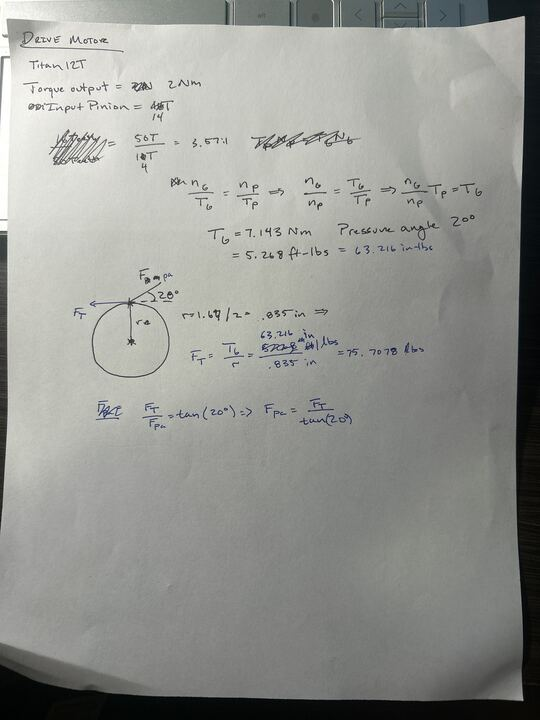 DRIVE MOTOR
Titan 12T
Torque output = 2 Nm
Input Pinion = 14T
= 50T/14T = 3.57:1
n_G/T_G = n_P/T_P ⇒ n_G/n_P = T_G/T_P ⇒ n_G/n_P T_P = T_G
T_G = 7.143 Nm Pressure angle 20°
= 5.268 ft-lbs = 63.216 in-lbs
F_pa
20°
F_T
r
r = 1.67/2 = .835 in ⇒
F_T = T_G/r = 63.216 in lbs/.835 in = 75.7078 lbs
F_T/F_pa = tan(20°) ⇒ F_pa = F_T/tan(20°)